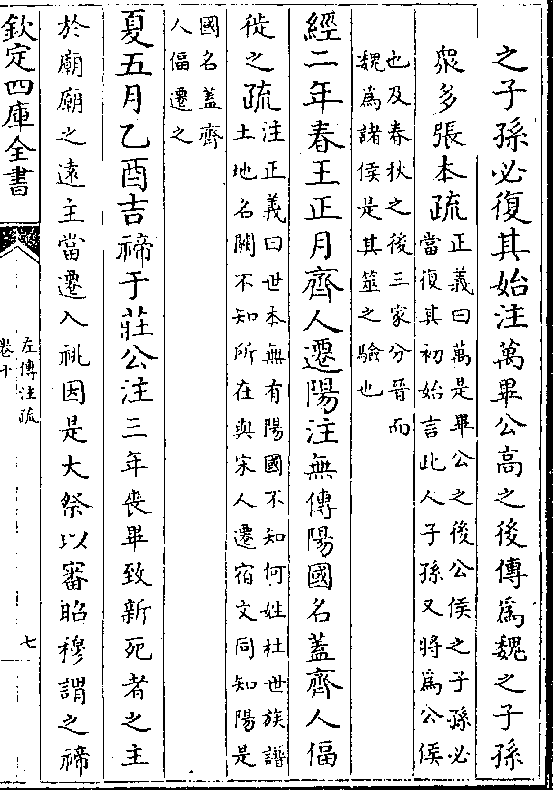 之子孫必復其始注萬畢公高之後傳為魏之子孫
衆多張本疏
正義曰萬是畢公之後公侯之子孫必
當復其初始言此人子孫又將為公侯
也及春秋之後三家分晉而
魏為諸侯是其筮之驗也
經二年春王正月齊人遷陽注無傳陽國名蓋齊人偪
徙之疏
注正義曰世本無有陽國不知何姓杜世族譜
土地名闕不知所在與宋人遷宿文同知陽是
國名蓋齊
人偪遷之
夏五月乙酉吉禘于莊公注三年喪畢致新死者之主
於廟廟之遠主當遷入祧因是大祭以審昭穆謂之禘
欽定四庫全書
左傳注疏
卷十
七